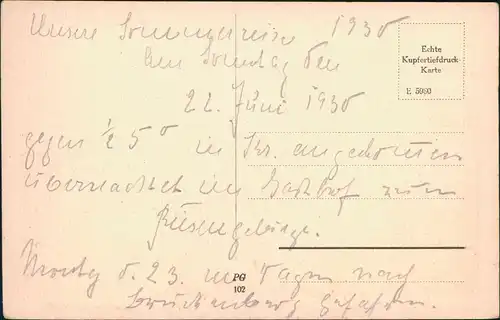 Unsere Sommerreise 1930
Am Sonntag den
22. Juni 1930
gegen ½ 5 0 in Kr. angekommen
übernachtet im Gasthof zum
Riesengebirge.
Montag d. 23. nach
Brückenberg gefahren.
Echte
Kupfertiefdruck-
Karte
E 5090
PG
102